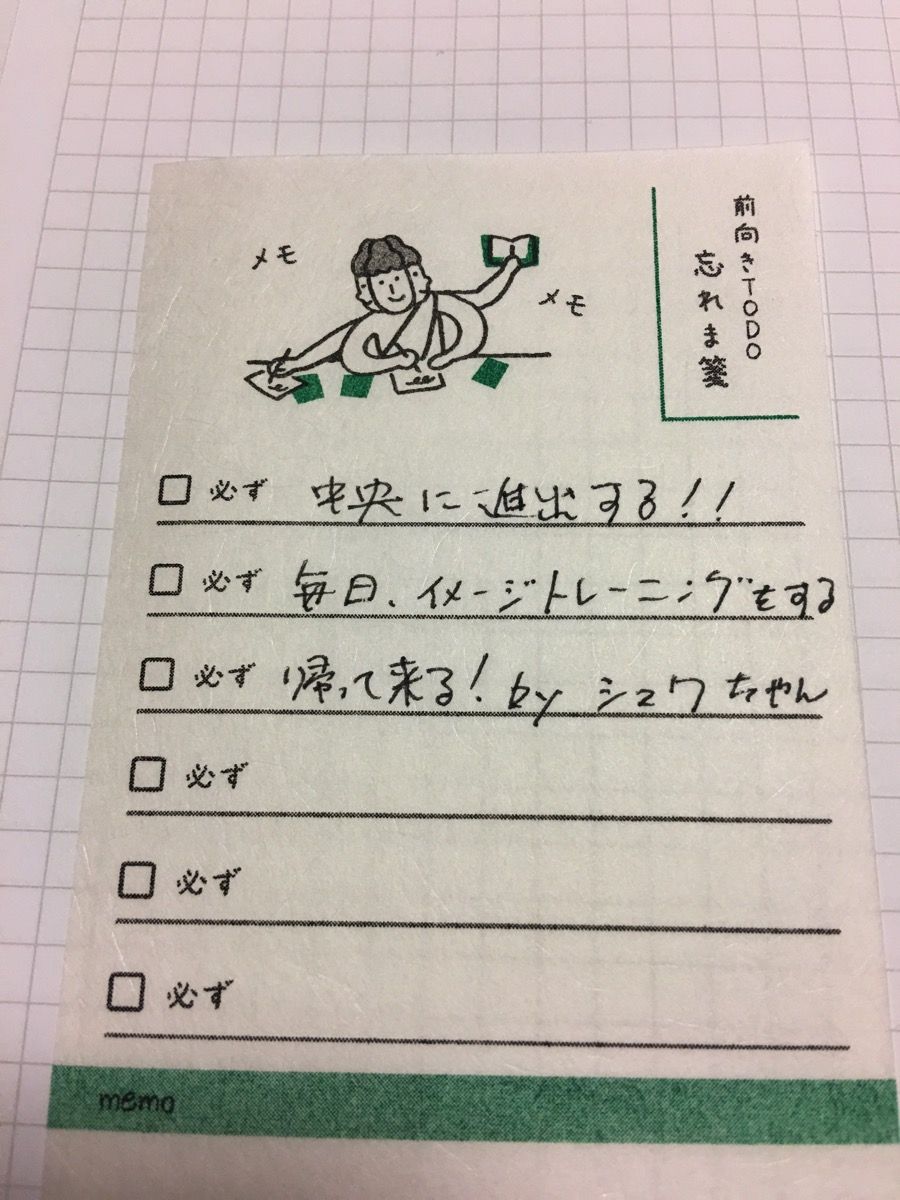 前向きTODO
忘れま箋
メモ
メモ
必ず 中央に進出する!!
必ず 毎日、イメージトレーニングをする
必ず 帰って来る! by シュワちゃん
必ず
必ず
必ず
memo